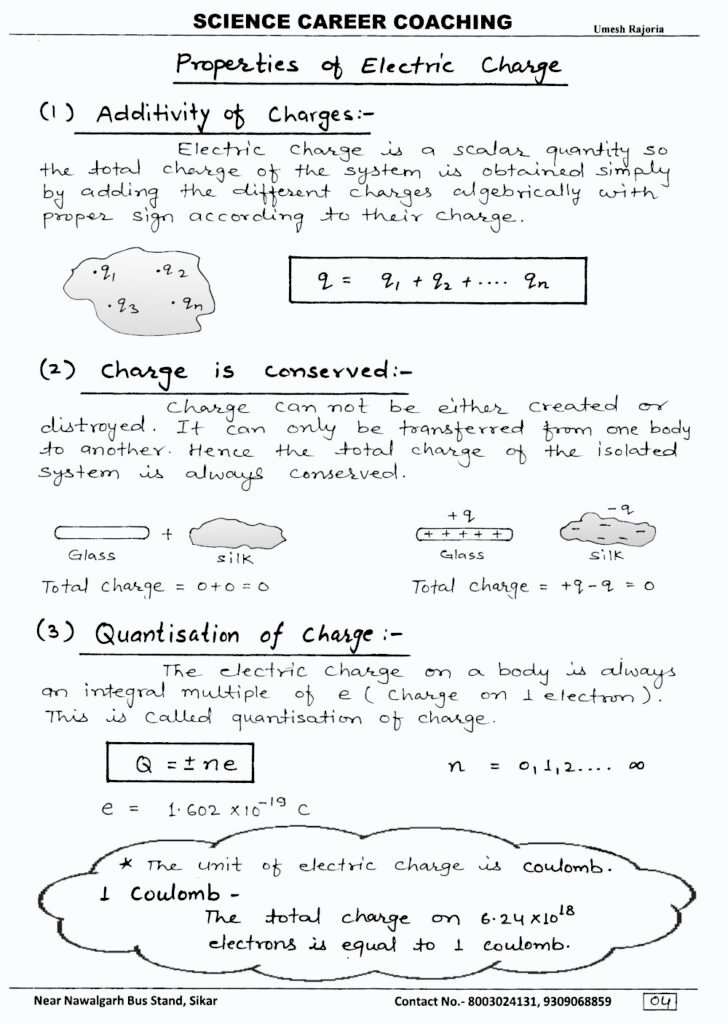 SCIENCE CAREER COACHING
Umesh Rajoria
Properties of Electric Charge
(1) Additivity of Charges:-
Electric Charge is a scalar quantity so
the total charge of the system is obtained simply
by adding the different charges algebrically with
proper sign according to their charge.
·q1 ·q2
·q3 ·qn
q = q1 + q2 + ···· qn
(2) Charge is conserved:-
Charge can not be either created or
distroyed. It can only be transferred from one body
to another. Hence the total charge of the isolated
system is always conserved.
+q -q
+ + + + + +
Glass silk Glass silk
Total charge = 0+0 = 0 Total charge = +q-q = 0
(3) Quantisation of Charge:-
The electric charge on a body is always
an integral multiple of e (Charge on 1 electron).
This is called quantisation of charge.
Q = ± ne n = 0,1,2.... ∞
e = 1.602 ×10⁻¹⁹ C
* The unit of electric charge is coulomb.
1 Coulomb -
The total charge on 6.24×10¹⁸
electrons is equal to 1 coulomb.
Near Nawalgarh Bus Stand, Sikar Contact No.- 8003024131, 9309068859 04